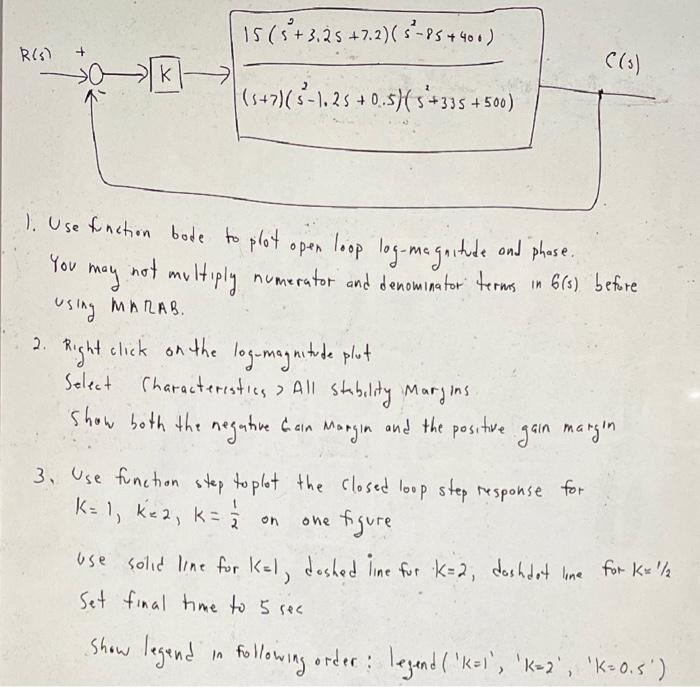 15 (s² + 3.2s + 7.2)(s² - 8s + 400)
R(s) + K C(s)
(s+7)(s² - 1.2s + 0.5)(s² + 33s + 500)
-
1. Use function bode to plot open loop log-magnitude and phase.
You may not multiply numerator and denominator terms in G(s) before
using MATLAB.
2. Right click on the log-magnitude plot
Select Characteristics > All Stability Margins
Show both the negative Gain Margin and the positive gain margin
3. Use function step to plot the closed loop step response for
K = 1, K = 2, K = 1/2 on one figure
Use solid line for K=1, dashed line for K=2, dashdot line for K=1/2
Set final time to 5 sec
Show legend in following order: legend('K=1', 'K=2', 'K=0.5')